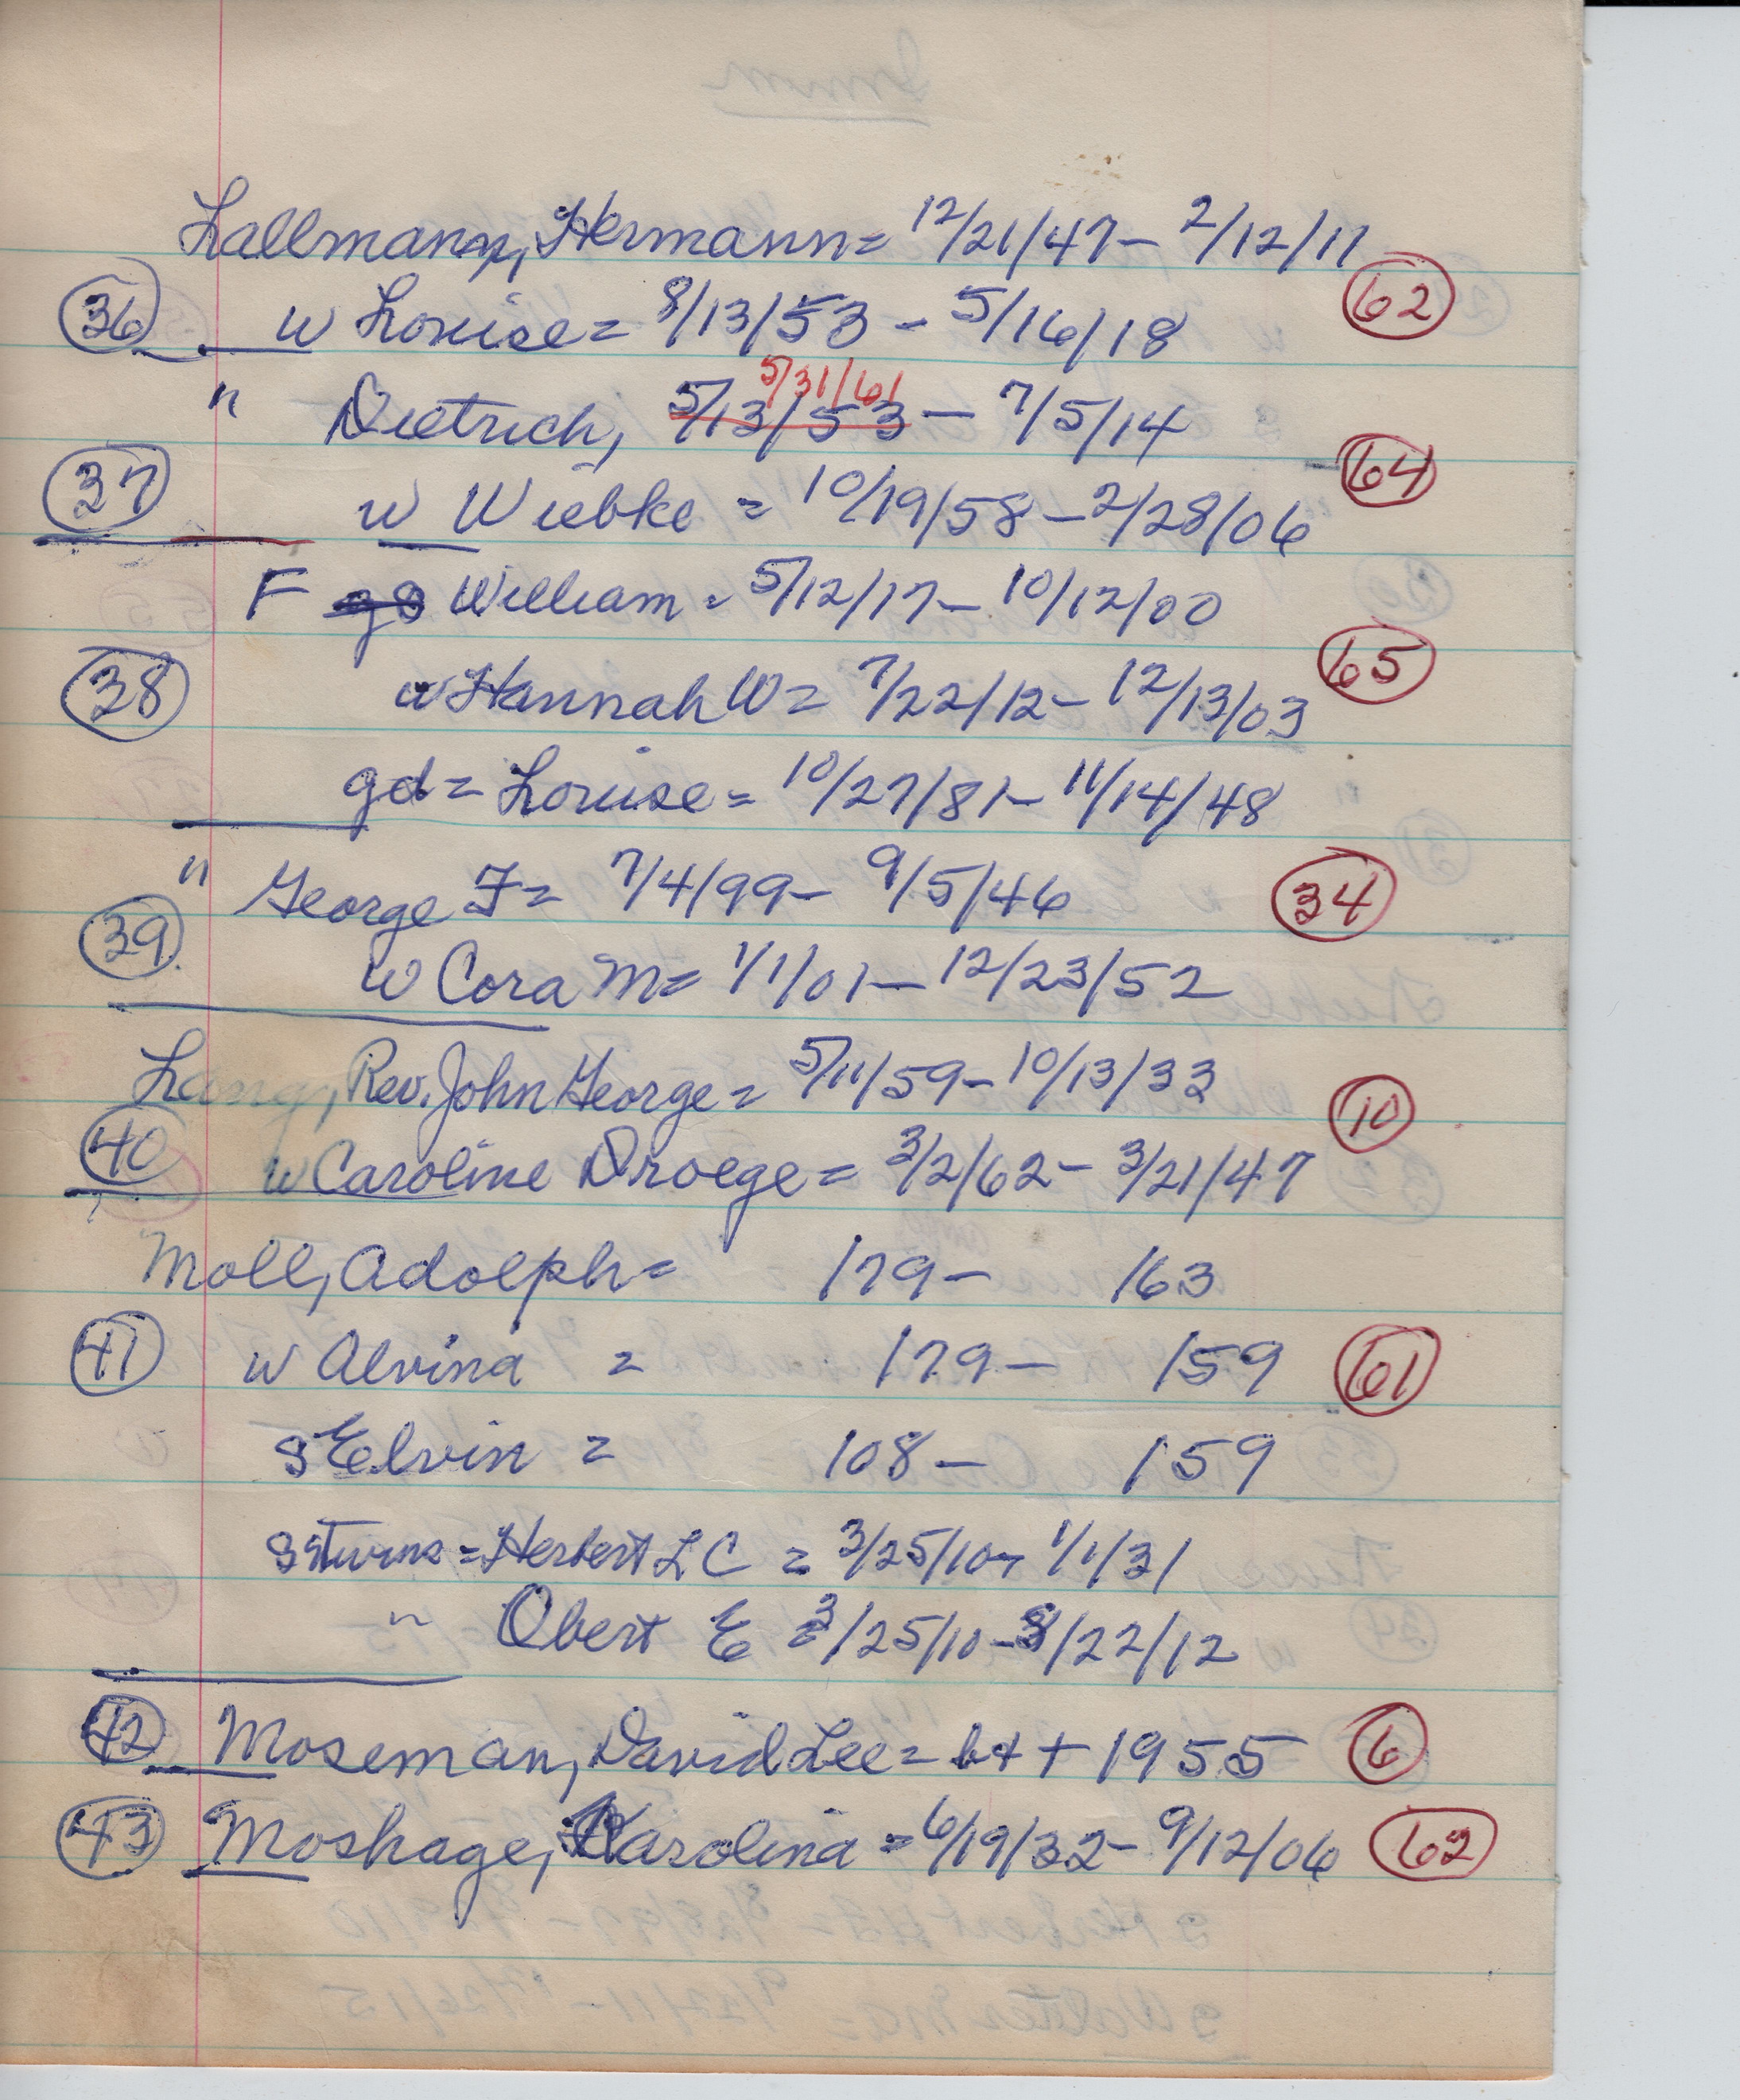 Lallmann, Hermann = 12/21/47 - 2/12/11
36 w Louise = 8/13/53 - 5/16/18 62
5/31/61
" Dietrich, 5/13/53 - 7/5/14
37 w Wiebke = 10/19/58 - 2/28/06 64
F gs William = 5/12/17 - 10/12/00
38 w Hannah W = 7/22/12 - 12/13/03 65
gd = Louise = 10/27/81 - 11/14/48
" George F = 7/4/99 - 9/5/46 34
39 w Cora M = 1/1/01 - 12/23/52
Lang, Rev. John George = 5/11/59 - 10/13/33
40 w Caroline Droege = 3/2/62 - 3/21/47 10
Moll, Adolph = /79 - /63
41 w Alvina = /79 - /59 61
s Elvin = /08 - /59
s Twins = Herbert L C = 3/25/10 - 1/1/31
" Obert E = 3/25/10 - 8/22/12
42 Moseman, David Lee = b + + 1955 6
43 Moshage, Karolina = 6/19/32 - 9/12/06 62